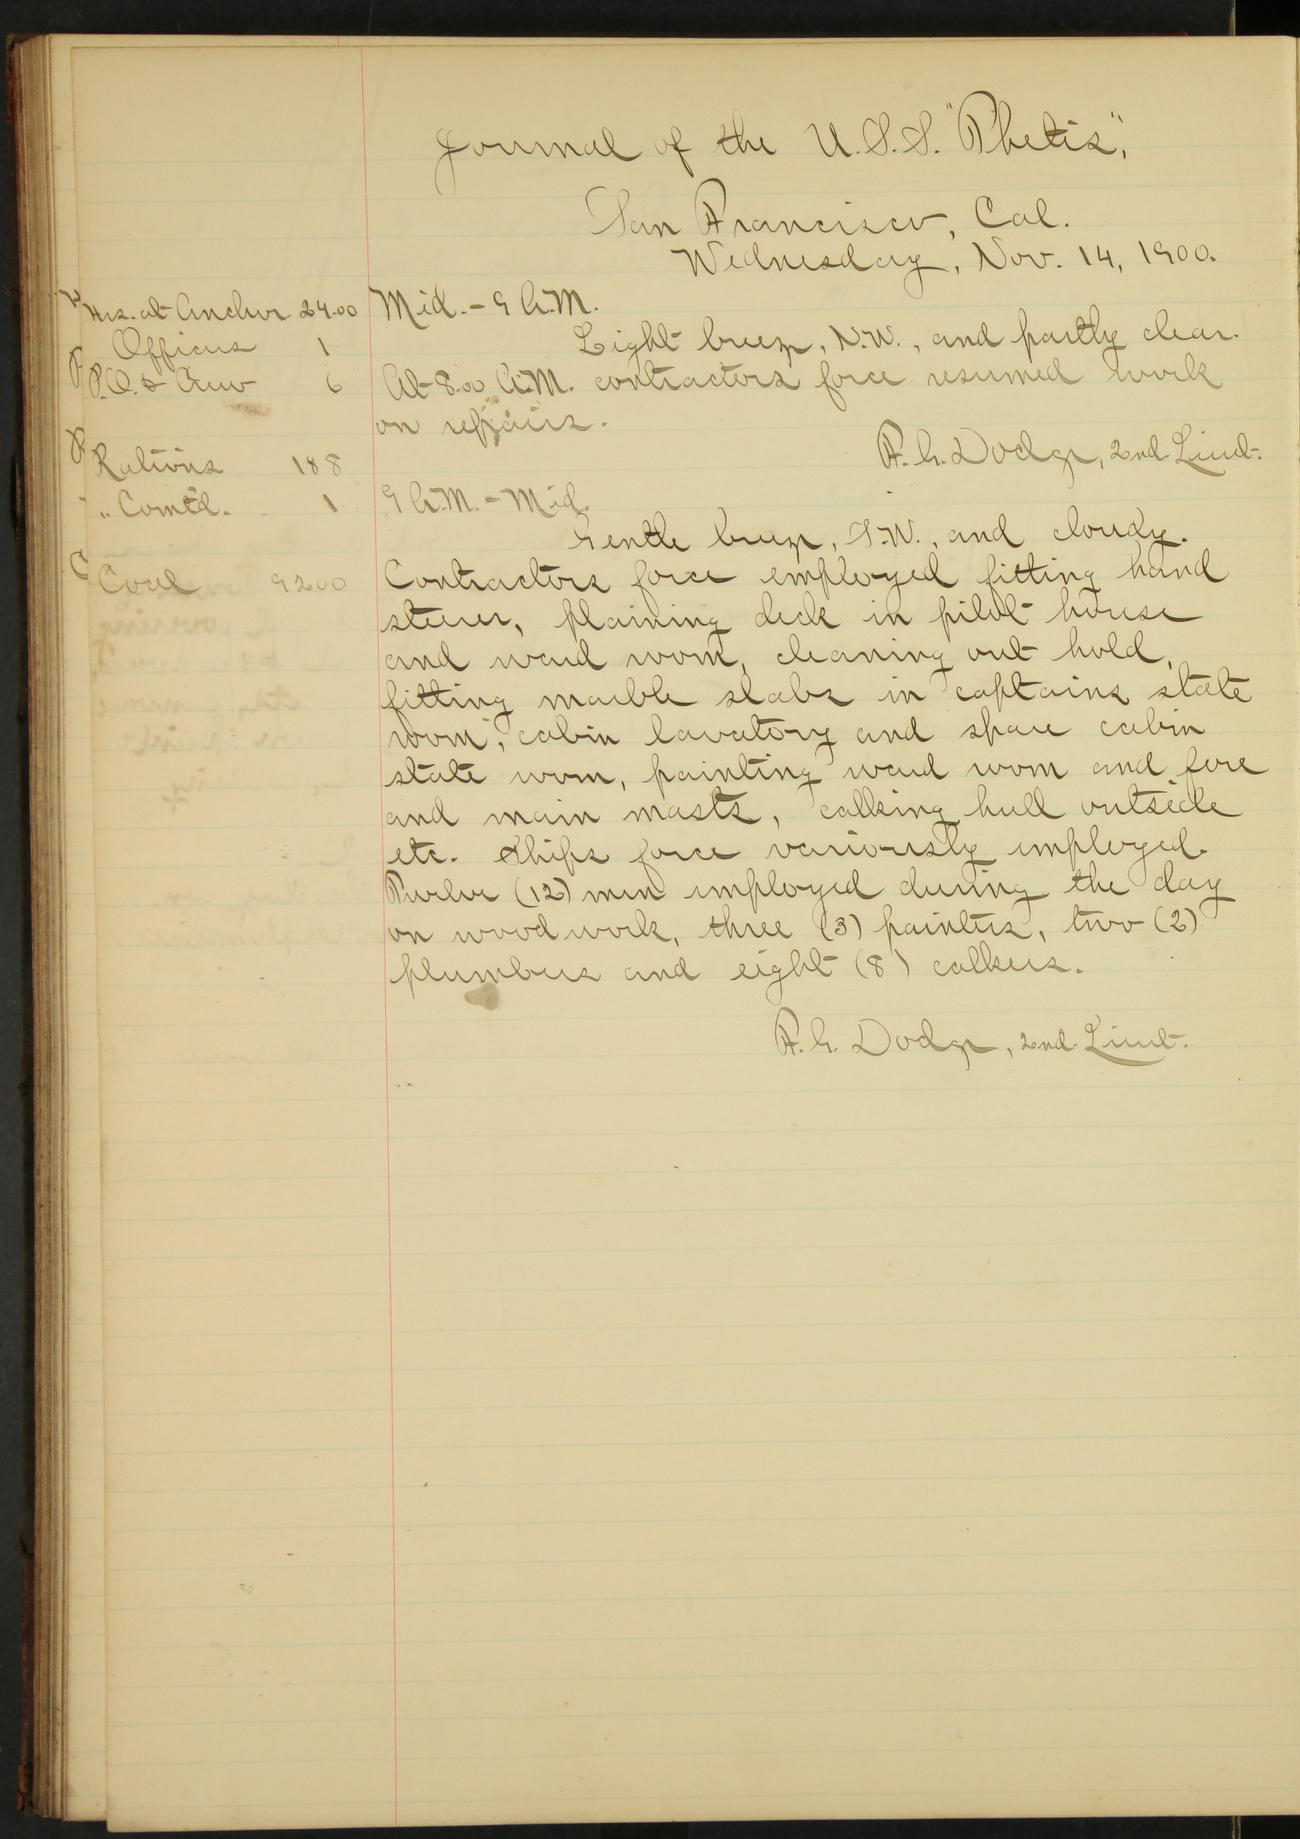 Journal of the U.S.S. "Thetis,"
San Francisco, Cal.
Wednesday, Nov. 14, 1900.
Hrs. at Anchor 24.00
Officers 1
P.O. & Crew 6
Rations 188
" Com'td. 1
Coal 9200
Mid. - 9 A.M.
Light breeze, N.W., and partly clear.
At 8.00 A.M. contractors force resumed work
on repairs.
F. G. Dodge, 2nd Lieut.
9 A.M. - Mid.
Gentle breeze, S.W., and cloudy.
Contractors force employed fitting hand
steerer, plaining deck in pilot house
and ward room, cleaning out hold,
fitting marble slabs in captains state
room, cabin lavatory and spare cabin
state room, painting ward room and fore
and main masts, calking hull outside
etc. Ships force variously employed.
Twelve (12) men employed during the day
on wood work, three (3) painters, two (2)
plumbers and eight (8) calkers.
F. G. Dodge, 2nd Lieut.